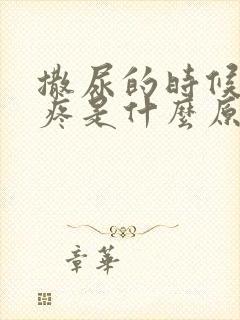 撒尿的時候
疼是什麼原
章華